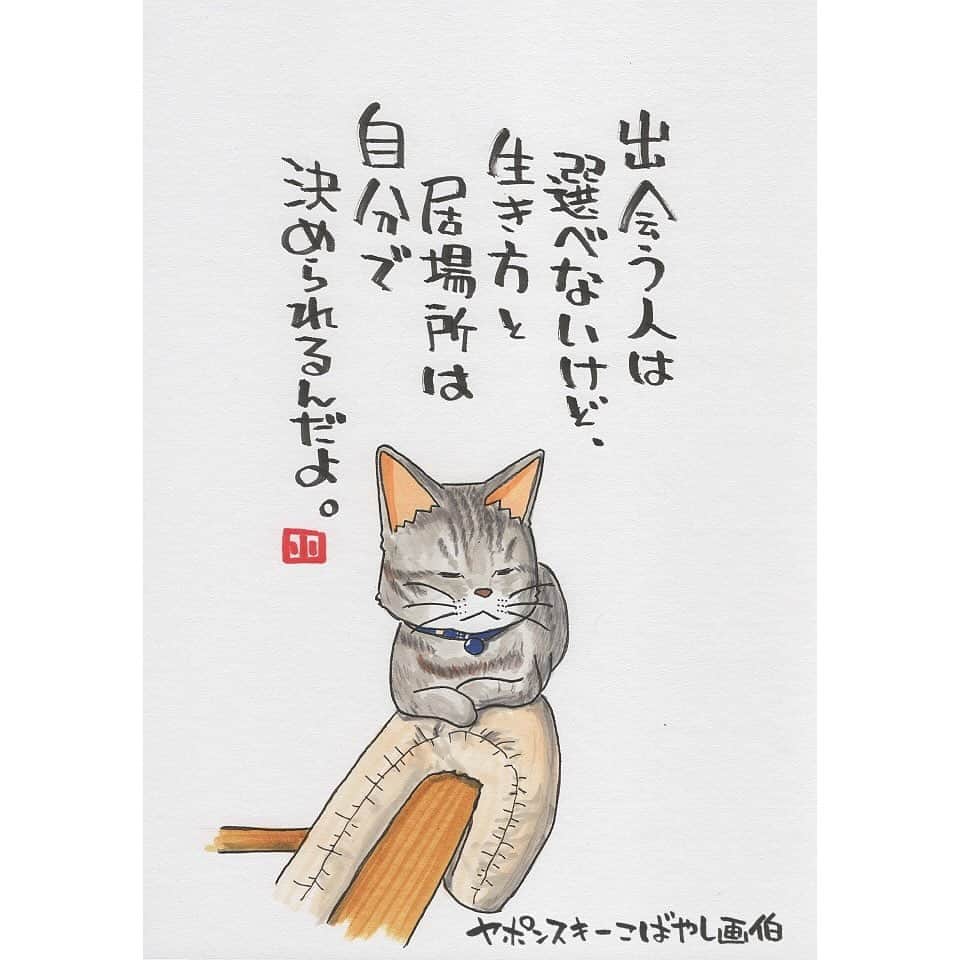 出会う人は
選べないけど、
生き方と
居場所は
自分で
決められるんだよ。
ヤポンスキーこばやし画伯